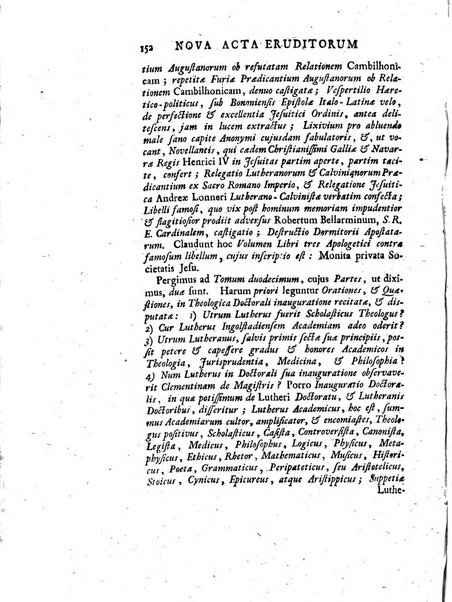 152 NOVA ACTA ERUDITORUM
tium Augustanorum ob refutatam Relationem Cambilhoni-
cam; repetitæ Furiæ Prædicantium Augustanorum ob Rela-
tionem Cambilhonicam, denuo castigatæ; Vespertilio Hære-
tico-politicus, sub Bononiensis Epistolæ Italo-Latinæ velo,
de perfectione & excellentia Jesuitici Ordinis, antea deli-
tescens, jam in lucem extractus; Lixivium pro abluendo
male sano capite Anonymi cujusdam fabulatoris, & ut vo-
cant, Novellantis, qui cædem Christianissimi Galliæ & Navar-
ræ Regis Henrici IV in Jesuitas partim aperte, partim taci-
te, confert; Relegatio Lutheranorum & CalvinianorumPræ-
dicantium ex Sacro Romano Imperio, & Relegatione Jesuiti-
ca Andreæ Lonneri Lutherano-Calvinistæ verbatim confecta;
Libelli famosi, quo vix post hominum memoriam impudentior
& flagitiosior prodiit adversus Robertum Bellarminum, S. R.
E. Cardinalem, castigatio; Destructio Dormitorii Apostata-
rum. Claudunt hoc Volumen Libri tres Apologetici contra
famosum libellum, cujus inscriptio est: Monita privata So-
cietatis Jesu.
Pergimus ad Tomum duodecimum, cujus Partes, ut dixi-
mus, duæ sunt. Harum priori leguntur Orationes, & Quæ-
stiones, in Theologica Doctorali inauguratione recitatæ, & di-
sputatæ: 1) Utrum Lutherus fuerit Scholasticus Theologus?
2) Cur Lutherus Ingolstadiensem Academiam adeo oderit?
3) Utrum Lutheranus, salvis primis sectæ suæ principiis, pos-
sit petere & capessere gradus & honores Academicos in
Theologia, Jurisprudentia, Medicina, & Philosophia?
4) Num Lutherus in Doctorali sua inauguratione observave-
rit Clementinam de Magistris? Porro Inauguratio Doctora-
lis, in qua potissimum de Lutheri Doctoratu, & Lutheranis
Doctoribus, disseritur; Lutherus Academicus, hoc est, sum-
mus Academiarum cultor, amplificator, & encomiastes, Theolo-
gus positivus, Scholasticus, Casista, Controversista, Canonista,
Legista, Medicus, Philosophus, Logicus, Physicus, Meta-
physicus, Ethicus, Rhetor, Mathematicus, Musicus, Histori-
cus, Poeta, Grammaticus, Peripateticus, seu Aristotelicus,
Stoicus, Cynicus, Epicureus, atque Aristippicus; Suppetiæ
Luthe-